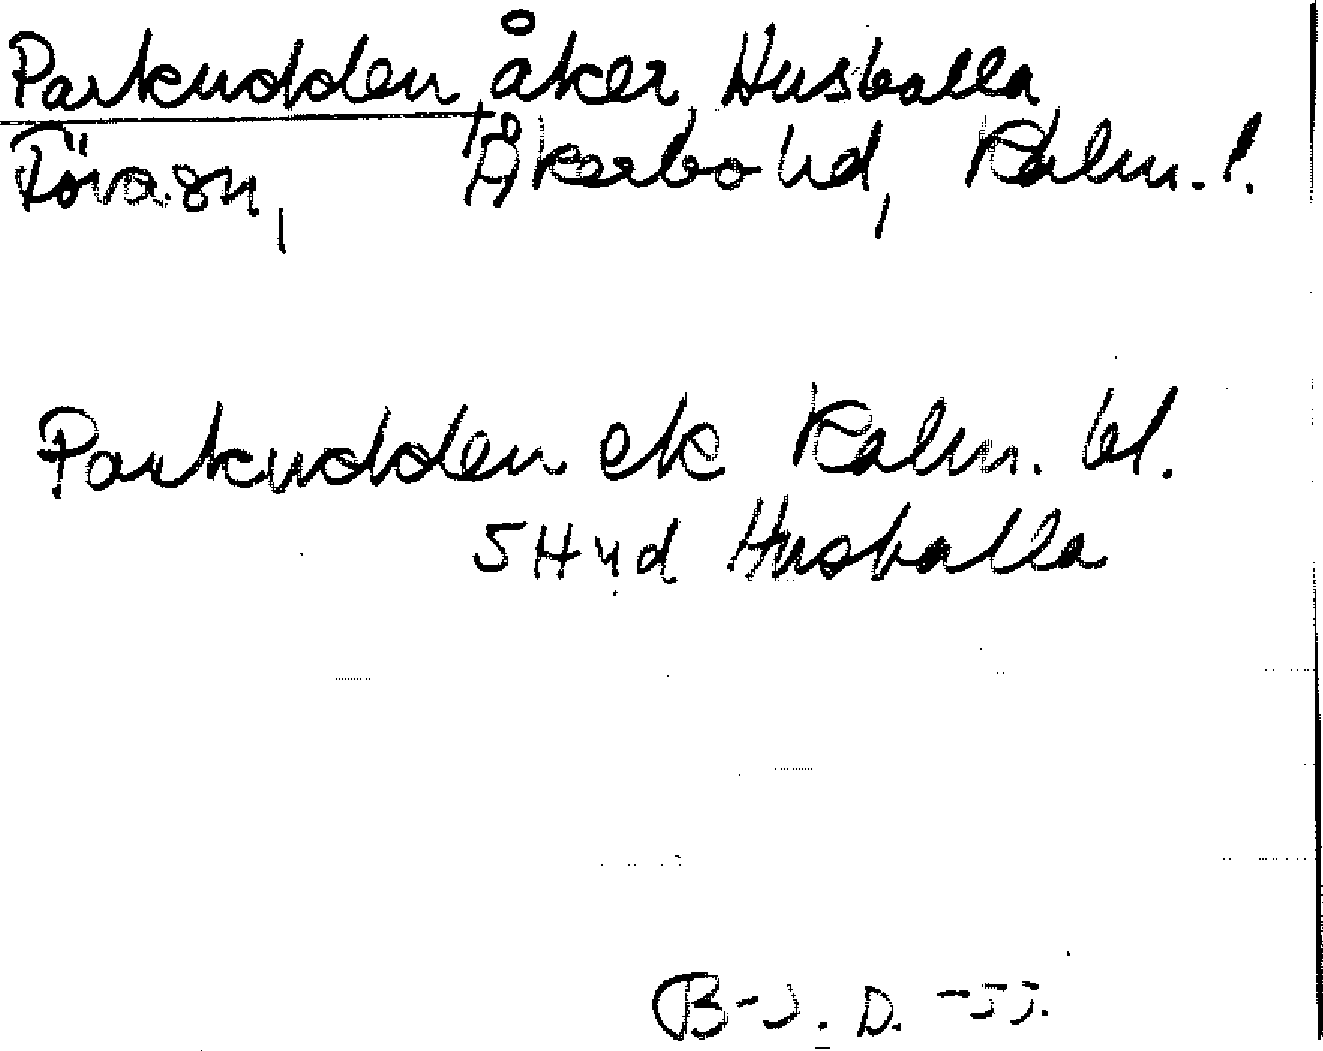 Parkudden, åker, Husvalla
Löva sn, Åkerbo hd, Kalm. l.
Parkudden ek Kalm. bl.
5H4d Husvalla
B-J. D. -55.